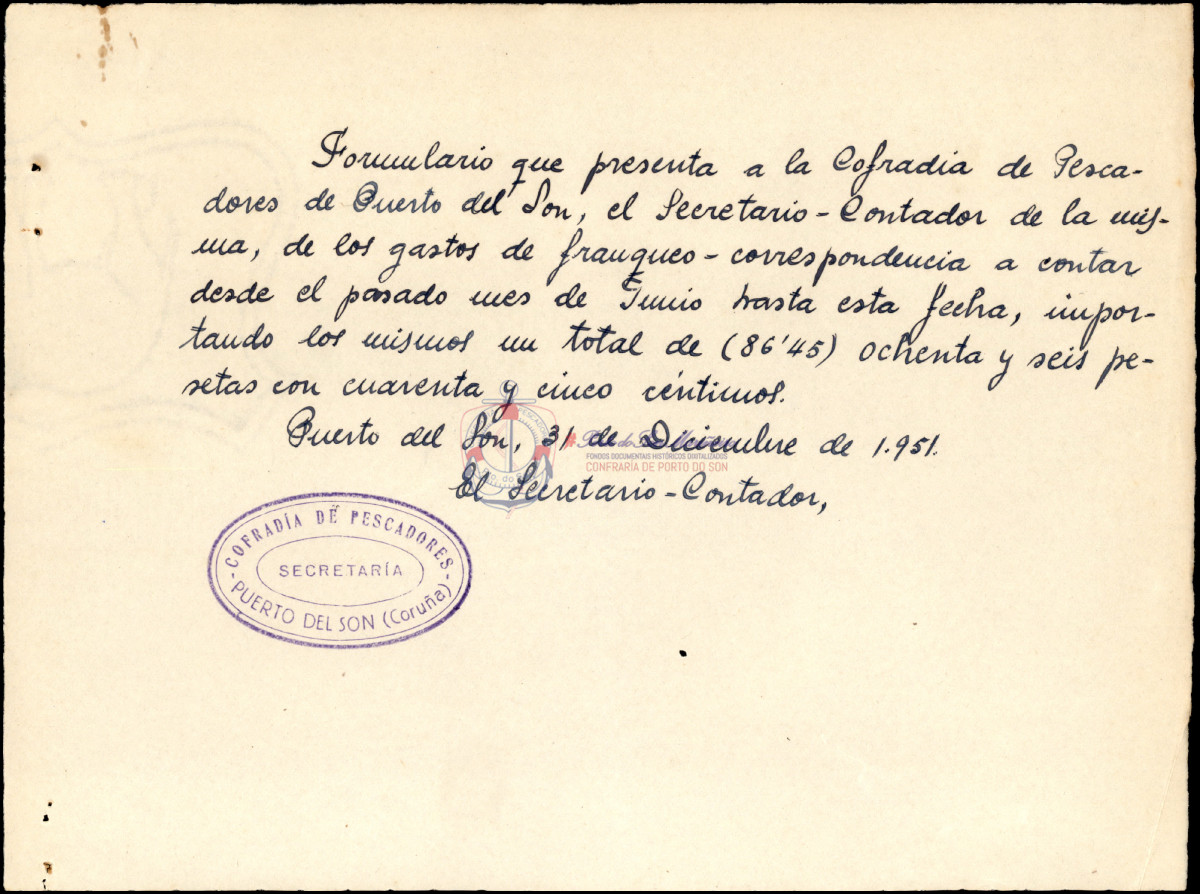 Formulario que presenta a la Cofradia de Pesca-
dores de Puerto del Son, el Secretario-Contador de la mis-
ma, de los gastos de franqueo-correspondencia a contar
desde el pasado mes de Junio hasta esta fecha, impor-
tando los mismos un total de (86'45) ochenta y seis pe-
setas con cuarenta y cinco céntimos.
Puerto del Son, 31 de Diciembre de 1.951.
El Secretario-Contador,
FONDOS DOCUMENTAIS HISTÓRICOS DIXITALIZADOS
CONFRARÍA DE PORTO DO SON
-COFRADÍA DE PESCADORES-
SECRETARÍA
PUERTO DEL SON (Coruña)